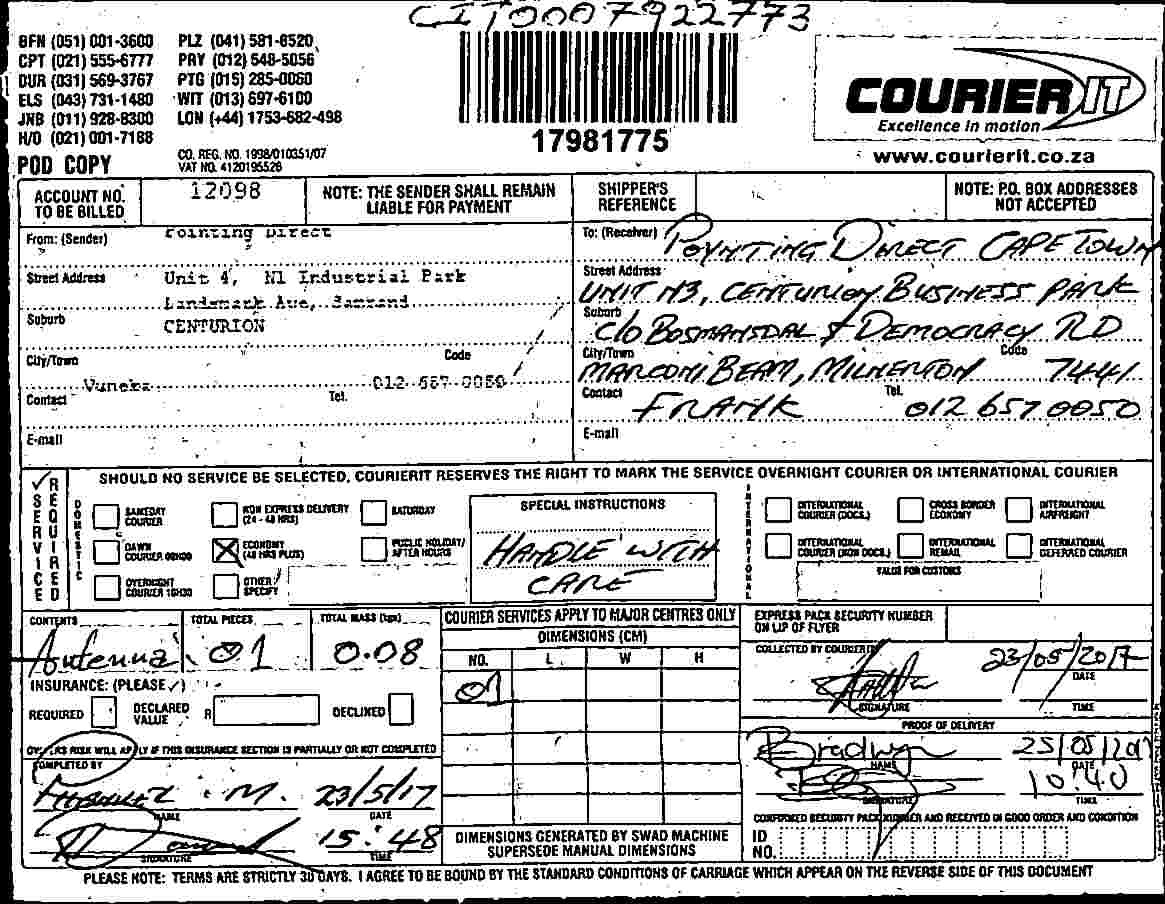 CIT0007922773
BFN (051) 001-3600 PLZ (041) 581-8520
CPT (021) 555-6777 PRY (012) 548-5056
DUR (031) 569-3767 PTG (015) 285-0060
ELS (043) 731-1480 WIT (013) 697-6100
JNB (011) 928-8300 LON (+44) 1753-682-498
H/O (021) 001-7188
POD COPY
CO. REG. NO. 1998/010351/07
VAT NO. 4120195526
17981775
COURIER IT
Excellence in motion
www.courierit.co.za
ACCOUNT NO. TO BE BILLED
12098
NOTE: THE SENDER SHALL REMAIN LIABLE FOR PAYMENT
SHIPPER'S REFERENCE
NOTE: P.O. BOX ADDRESSES NOT ACCEPTED
From: (Sender) Pointing Direct
Street Address Unit 4, N1 Industrial Park
Landmark Ave, Samrand
Suburb CENTURION
City/Town Code
Contact Vuneka Tel. 012 657 0050
E-mail
To: (Receiver) POYNTING DIRECT CAPE TOWN
Street Address UNIT N3, CENTURION BUSINESS PARK
Suburb C/O BOSMANSDAL & DEMOCRACY RD
City/Town MARCONI BEAM, MILNERTON Code 7441
Contact FRANK Tel. 012 657 0050
E-mail
SERVICE REQUIRED
SHOULD NO SERVICE BE SELECTED, COURIERIT RESERVES THE RIGHT TO MARK THE SERVICE OVERNIGHT COURIER OR INTERNATIONAL COURIER
DOMESTIC
SAMEDAY COURIER
NON EXPRESS DELIVERY (24 - 48 HRS)
SATURDAY
DAWN COURIER 08H00
ECONOMY (48 HRS PLUS)
PUBLIC HOLIDAY/ AFTER HOURS
OVERNIGHT COURIER 10H30
OTHER/ SPECIFY
SPECIAL INSTRUCTIONS
HANDLE WITH
CARE
INTERNATIONAL
INTERNATIONAL COURIER (DOCS.)
CROSS BORDER ECONOMY
INTERNATIONAL AIRFREIGHT
INTERNATIONAL COURIER (NON DOCS.)
INTERNATIONAL REMAIL
INTERNATIONAL DEFERRED COURIER
VALUE FOR CUSTOMS
CONTENTS Antenna
TOTAL PIECES 01
TOTAL MASS (kgs) 0.08
INSURANCE: (PLEASE ✓)
REQUIRED
DECLARED VALUE R
DECLINED
RISK WILL APPLY IF THIS INSURANCE SECTION IS PARTIALLY OR NOT COMPLETED
COMPLETED BY
M. 23/5/17
NAME DATE
15:48
SIGNATURE TIME
COURIER SERVICES APPLY TO MAJOR CENTRES ONLY
DIMENSIONS (CM)
NO. L W H
01
DIMENSIONS GENERATED BY SWAD MACHINE
SUPERSEDE MANUAL DIMENSIONS
EXPRESS PACK SECURITY NUMBER
ON LIP OF FLYER
COLLECTED BY COURIERIT
23/05/2017
DATE
SIGNATURE TIME
PROOF OF DELIVERY
Bradwyn 25/05/2017
NAME DATE
10:40
SIGNATURE TIME
CONFIRMED SECURITY PACK NUMBER AND RECEIVED IN GOOD ORDER AND CONDITION
ID NO.
PLEASE NOTE: TERMS ARE STRICTLY 30 DAYS. I AGREE TO BE BOUND BY THE STANDARD CONDITIONS OF CARRIAGE WHICH APPEAR ON THE REVERSE SIDE OF THIS DOCUMENT